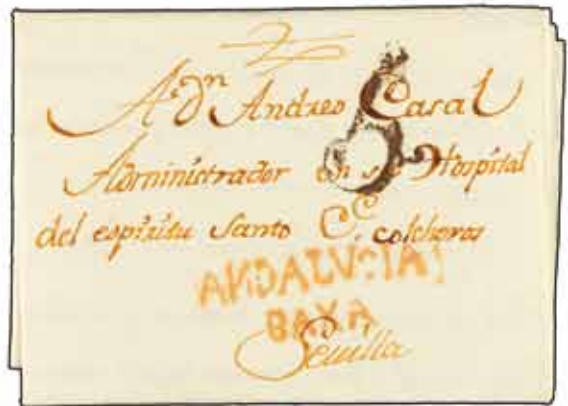 A. dn Andres Casal
5
Administrador en su Hospital
del espiritu Santo C.e colcheros
ANDALVCIA
BAXA
Sevilla